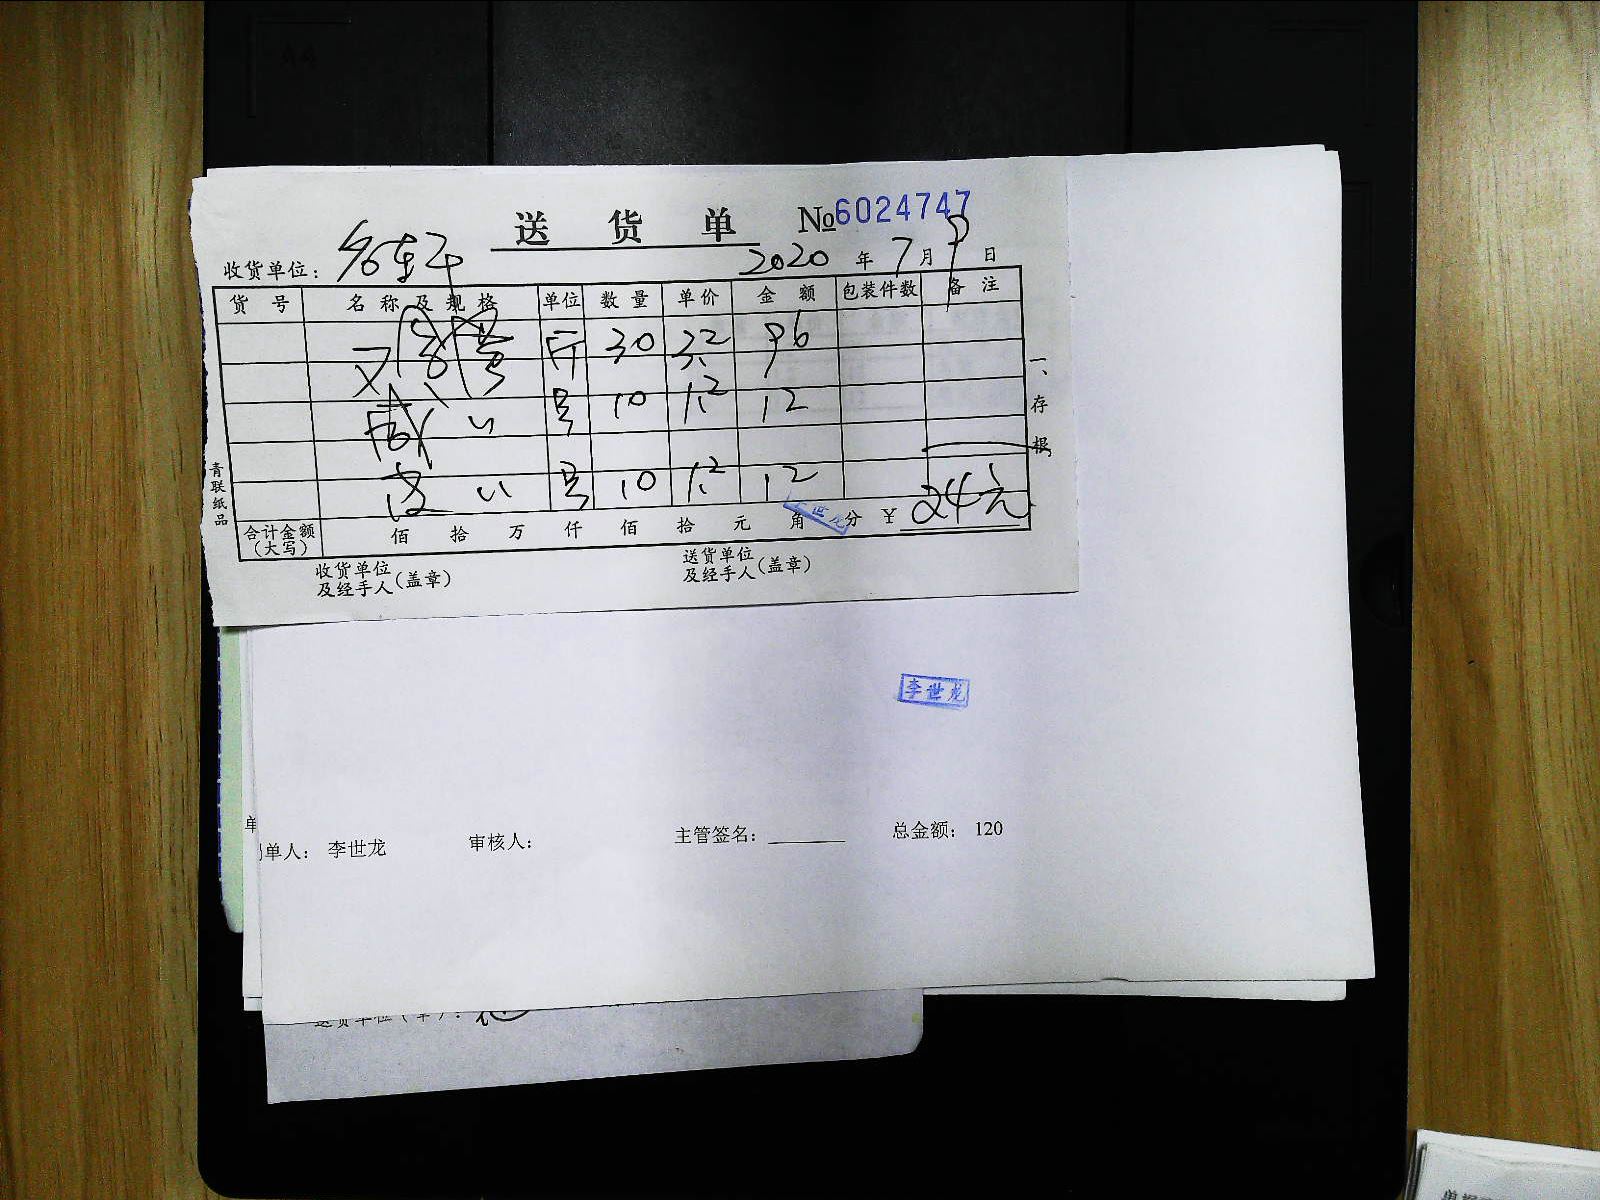 送 货 单 №6024747
收货单位： 2020 年 7 月 9 日
货 号 名 称 及 规 格 单位 数 量 单价 金 额 包装件数 备 注
斤 30 3.2 96
10 1.2 12
10 1.2 12
24元
合计金额（大写） 佰 拾 万 仟 佰 拾 元 角 分 ¥
收货单位及经手人（盖章） 送货单位及经手人（盖章）
一、存根
青联纸品
李世龙
单人： 李世龙 审核人： 主管签名： 总金额： 120